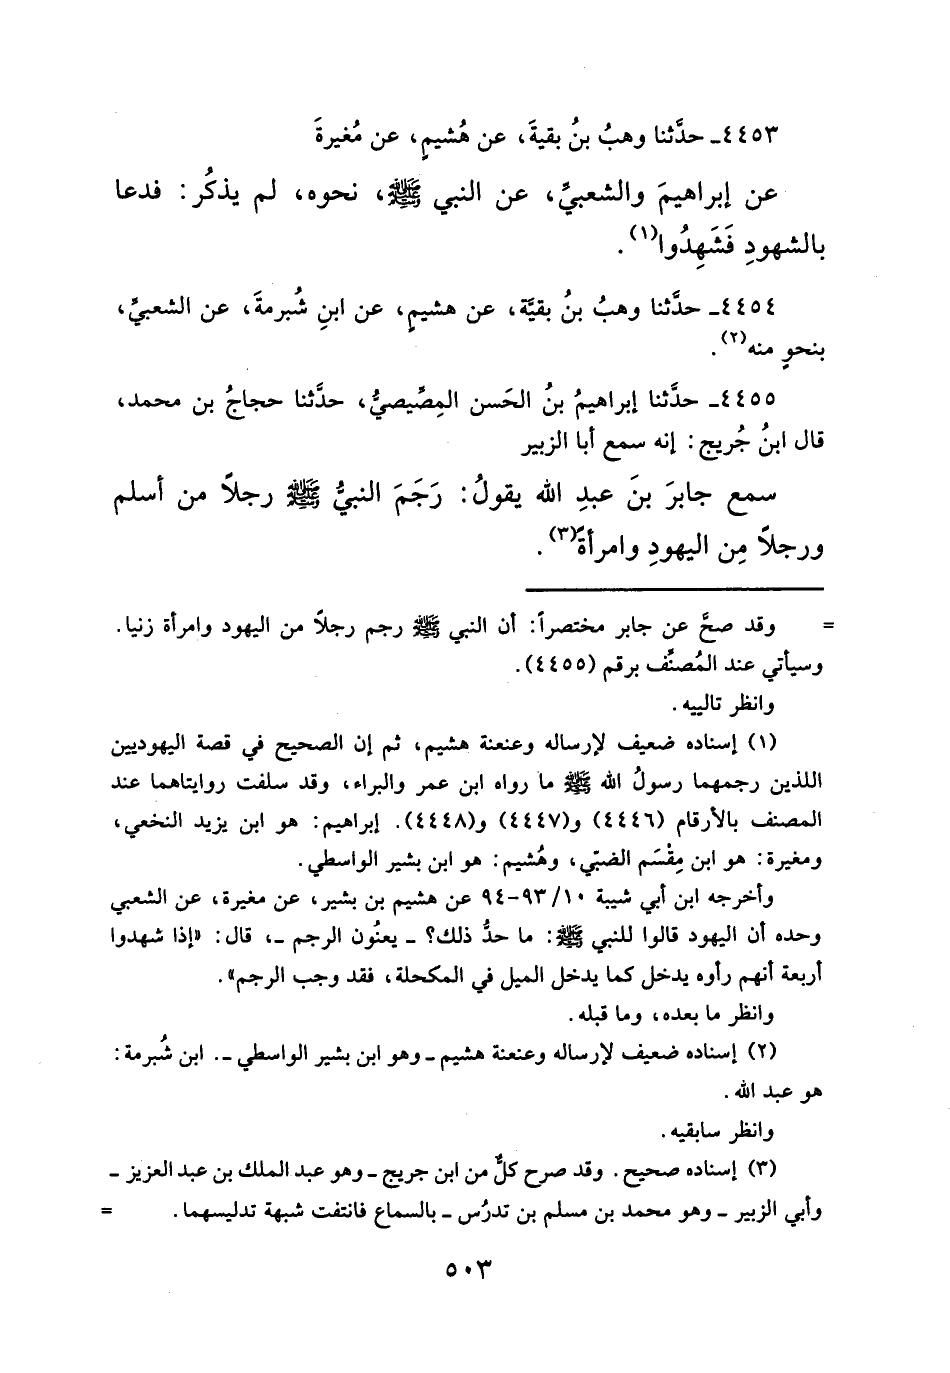 ٤٤٥٣ـ حدَّثنا وهبُ بنُ بقيةَ، عن هُشيمٍ، عن مُغيرةَ
عن إبراهيمَ والشعبيِّ، عن النبي ﷺ، نحوه، لم يذكُر: فدعا
بالشهودِ فَشَهِدُوا(١).
٤٤٥٤ـ حدَّثنا وهبُ بنُ بقيَّة، عن هشيمٍ، عن ابنِ شُبرمةَ، عن الشعبيِّ،
بنحوٍ منه(٢).
٤٤٥٥ـ حدَّثنا إبراهيمُ بنُ الحَسن المِصِّيصيُّ، حدَّثنا حجاجُ بن محمد،
قال ابنُ جُريج: إنه سمع أبا الزبير
سمع جابرَ بنَ عبدِ الله يقولُ: رَجَمَ النبيُّ ﷺ رجلاً من أسلم
ورجلاً مِن اليهودِ وامرأةً(٣).
= وقد صحَّ عن جابر مختصراً: أن النبي ﷺ رجم رجلاً من اليهود وامرأة زنيا.
وسيأتي عند المُصنِّف برقم (٤٤٥٥).
وانظر تالييه.
(١) إسناده ضعيف لإرساله وعنعنة هشيم، ثم إن الصحيح في قصة اليهوديين
اللذين رجمهما رسولُ الله ﷺ ما رواه ابن عمر والبراء، وقد سلفت روايتاهما عند
المصنف بالأرقام (٤٤٤٦) و(٤٤٤٧) و(٤٤٤٨). إبراهيم: هو ابن يزيد النخعي،
ومغيرة: هو ابن مِقْسَم الضبّي، وهُشيم: هو ابن بشير الواسطي.
وأخرجه ابن أبي شيبة ١٠/ ٩٣-٩٤ عن هشيم بن بشير، عن مغيرة، عن الشعبي
وحده أن اليهود قالوا للنبي ﷺ: ما حدُّ ذلك؟ ـ يعنُون الرجم ـ، قال: «إذا شهدوا
أربعة أنهم رأوه يدخل كما يدخل الميل في المكحلة، فقد وجب الرجم».
وانظر ما بعده، وما قبله.
(٢) إسناده ضعيف لإرساله وعنعنة هشيم ـ وهو ابن بشير الواسطي ـ. ابن شُبرمة:
هو عبد الله.
وانظر سابقيه.
(٣) إسناده صحيح. وقد صرح كلٌّ من ابن جريج ـ وهو عبد الملك بن عبد العزيز ـ
وأبي الزبير ـ وهو محمد بن مسلم بن تدرُس ـ بالسماع فانتفت شبهة تدليسهما. =
٥٠٣